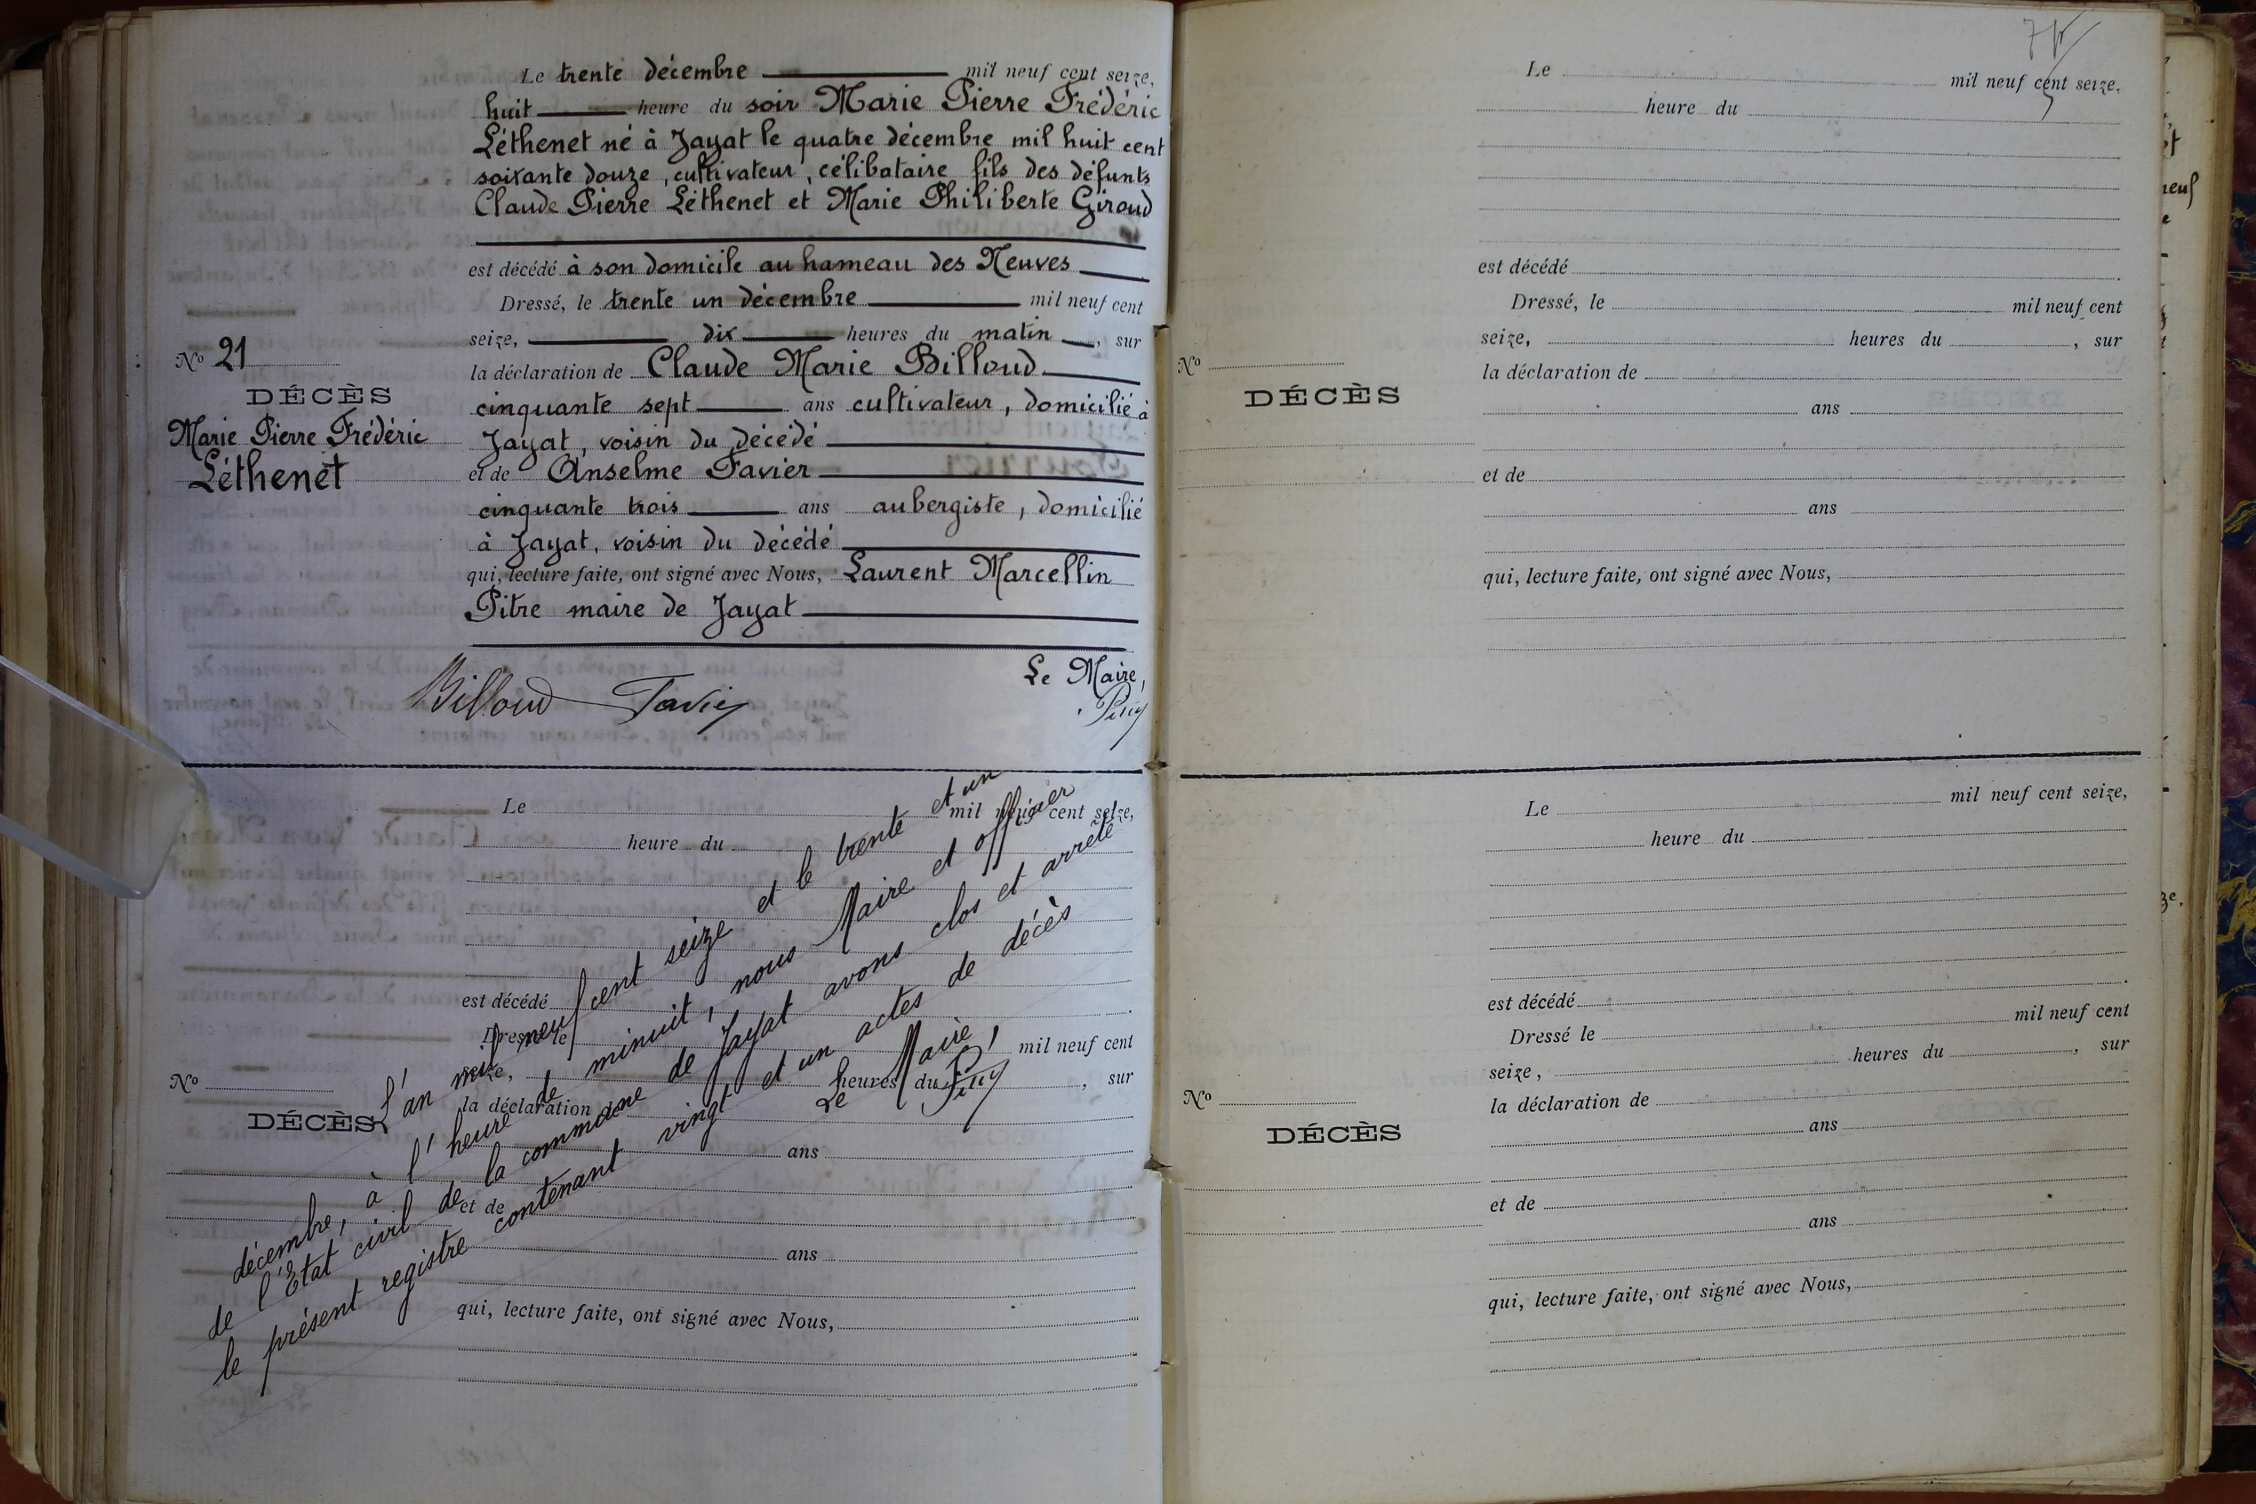 Le trente décembre mil neuf cent seize,
huit heure du soir Marie Pierre Frédéric
Léthenet né à Jayat le quatre décembre mil huit cent
soixante douze, cultivateur, célibataire fils des défunts
Claude Pierre Léthenet et Marie Philiberte Giroud
est décédé à son domicile au hameau des Neuves
Dressé, le trente un décembre mil neuf cent
seize, dix heures du matin, sur
la déclaration de Claude Marie Billoud
cinquante sept ans cultivateur, domicilié à
Jayat, voisin du décédé
et de Anselme Favier
cinquante trois ans aubergiste, domicilié
à Jayat, voisin du décédé
qui, lecture faite, ont signé avec Nous, Laurent Marcellin
Pitre maire de Jayat
Le Maire,
Billoud Favier
No 21
DÉCÈS
Marie Pierre Frédéric
Léthenet
Le mil neuf cent seize,
heure du
est décédé
Dressé le mil neuf cent
seize, heures du , sur
la déclaration de
ans
et de
ans
qui, lecture faite, ont signé avec Nous,
No
DÉCÈS
L'an mil neuf cent seize et le trente et un
décembre, à l'heure de minuit, nous Maire et officier
de l'Etat civil de la commune de Jayat avons clos et arrêté
le présent registre contenant vingt et un actes de décès
Le Maire,
Le mil neuf cent seize.
heure du
est décédé
Dressé, le mil neuf cent
seize, heures du , sur
la déclaration de
ans
et de
ans
qui, lecture faite, ont signé avec Nous,
No
DÉCÈS
Le mil neuf cent seize,
heure du
est décédé
Dressé le mil neuf cent
seize, heures du , sur
la déclaration de
ans
et de
ans
qui, lecture faite, ont signé avec Nous,
No
DÉCÈS